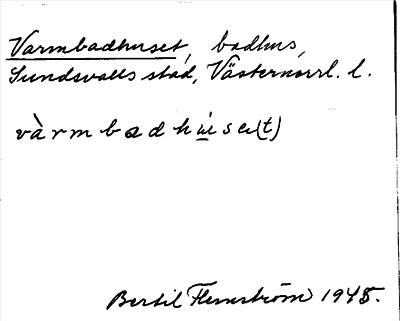 Varmbadhuset, badhus,
Sundsvalls stad, Västernorrl. l.
và r m b a d h ú̲ s e(t)
Bertil Flemström 1945.